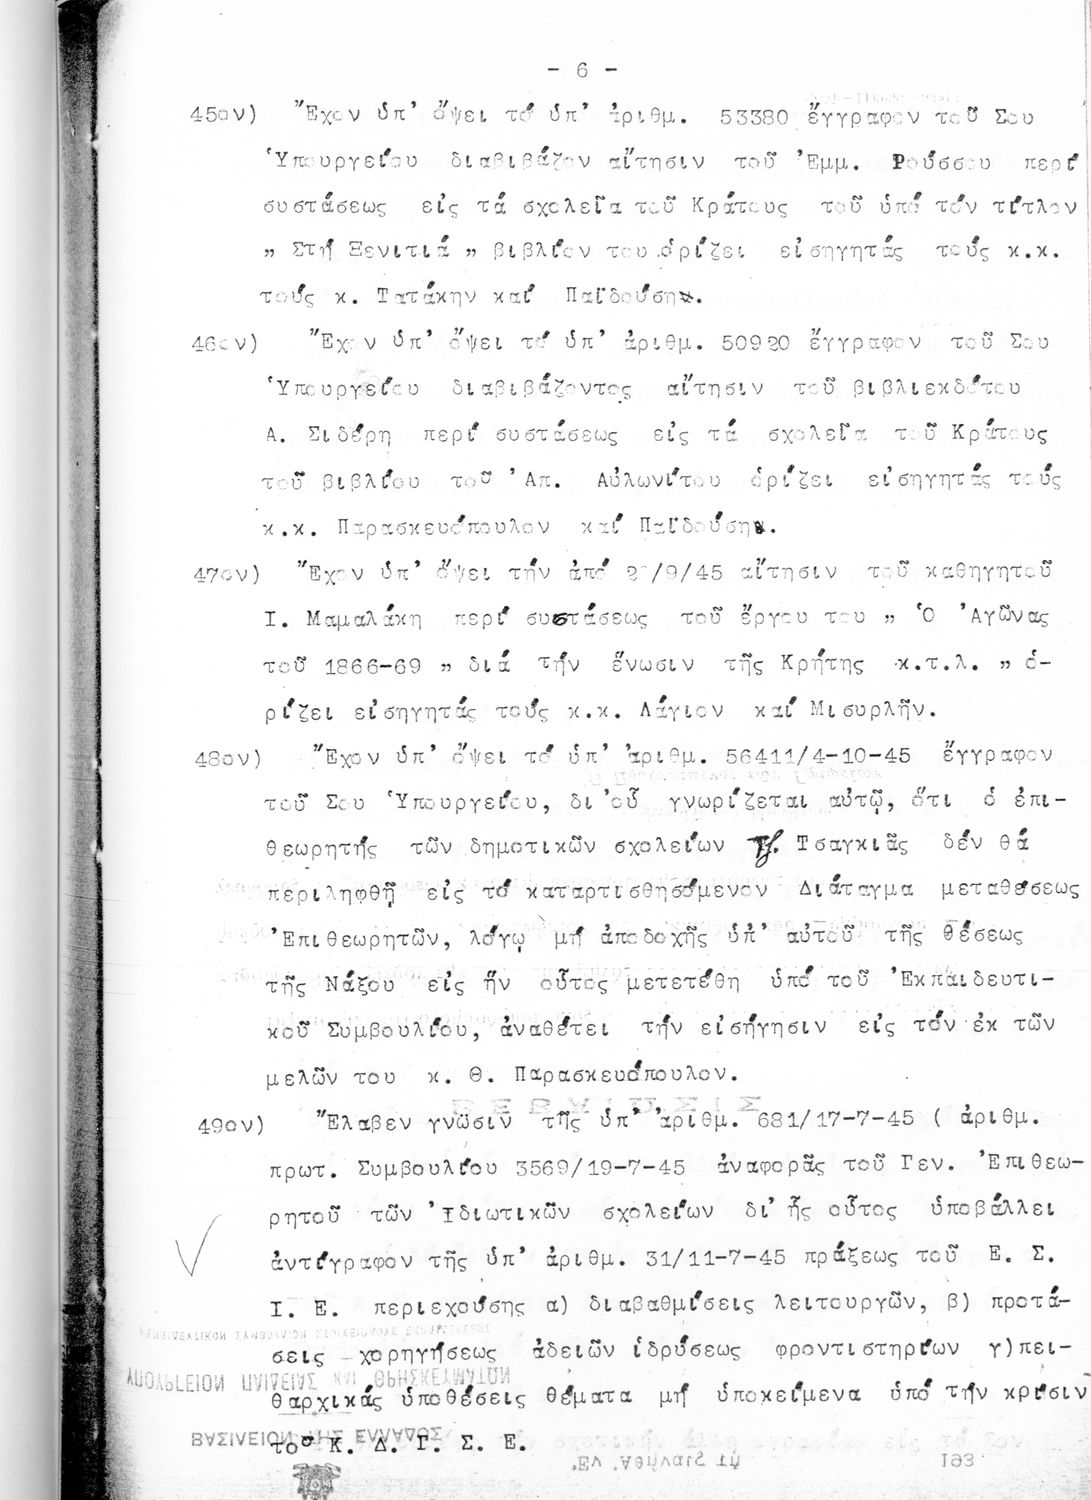 - 6 -
45ον) Ἔχον ὑπ' ὄψει τό ὑπ' ἀριθμ. 53380 ἔγγραφον τοῦ Σου
Ὑπουργείου διαβιβάζον αἴτησιν τοῦ Ἐμμ. Ρούσσου περί
συστάσεως εἰς τά σχολεῖα τοῦ Κράτους τοῦ ὑπό τόν τίτλον
" Στή Ξενιτιά " βιβλίον του ὁρίζει εἰσηγητάς τούς κ.κ.
τούς κ. Τατάκην καί Παϊδούσην.
46ον) Ἔχον ὑπ' ὄψει τό ὑπ' ἀριθμ. 50920 ἔγγραφον τοῦ Σου
Ὑπουργείου διαβιβάζοντος αἴτησιν τοῦ βιβλιεκδότου
Α. Σιδέρη περί συστάσεως εἰς τά σχολεῖα τοῦ Κράτους
τοῦ βιβλίου τοῦ Ἀπ. Αὐλωνίτου ὁρίζει εἰσηγητάς τούς
κ.κ. Παρασκευόπουλον καί Παϊδούσην.
47ον) Ἔχον ὑπ' ὄψει τήν ἀπό /9/45 αἴτησιν τοῦ καθηγητοῦ
Ι. Μαμαλάκη περί συστάσεως τοῦ ἔργου του " Ὁ Ἀγῶνας
τοῦ 1866-69 " διά τήν ἕνωσιν τῆς Κρήτης κ.τ.λ. " ὁ-
ρίζει εἰσηγητάς τούς κ.κ. Λάγιον καί Μισυρλῆν.
48ον) Ἔχον ὑπ' ὄψει τό ὑπ' ἀριθμ. 56411/4-10-45 ἔγγραφον
τοῦ Σου Ὑπουργείου, δι'οὗ γνωρίζεται αὐτῷ, ὅτι ὁ ἐπι-
θεωρητής τῶν δημοτικῶν σχολείων Τσαγκιᾶς δέν θά
περιληφθῇ εἰς τό καταρτισθησόμενον Διάταγμα μεταθέσεως
Ἐπιθεωρητῶν, λόγῳ μή ἀποδοχῆς ὑπ' αὐτοῦ τῆς θέσεως
τῆς Νάξου εἰς ἥν οὗτος μετετέθη ὑπό τοῦ Ἐκπαιδευτι-
κοῦ Συμβουλίου, ἀναθέτει τήν εἰσήγησιν εἰς τόν ἐκ τῶν
μελῶν του κ. Θ. Παρασκευόπουλον.
49ον) Ἔλαβεν γνῶσιν τῆς ὑπ' ἀριθμ. 681/17-7-45 ( ἀριθμ.
πρωτ. Συμβουλίου 3569/19-7-45 ἀναφορᾶς τοῦ Γεν. Ἐπιθεω-
ρητοῦ τῶν Ἰδιωτικῶν σχολείων δι' ἧς οὗτος ὑποβάλλει
ἀντίγραφον τῆς ὑπ' ἀριθμ. 31/11-7-45 πράξεως τοῦ Ε. Σ.
Ι. Ε. περιεχούσης α) διαβαθμίσεις λειτουργῶν, β) προτά-
σεις χορηγήσεως ἀδειῶν ἱδρύσεως φροντιστηρίων γ)πει-
θαρχικάς ὑποθέσεις θέματα μή ὑποκείμενα ὑπό τήν κρίσιν
τοῦ Κ. Δ. Γ. Σ. Ε.